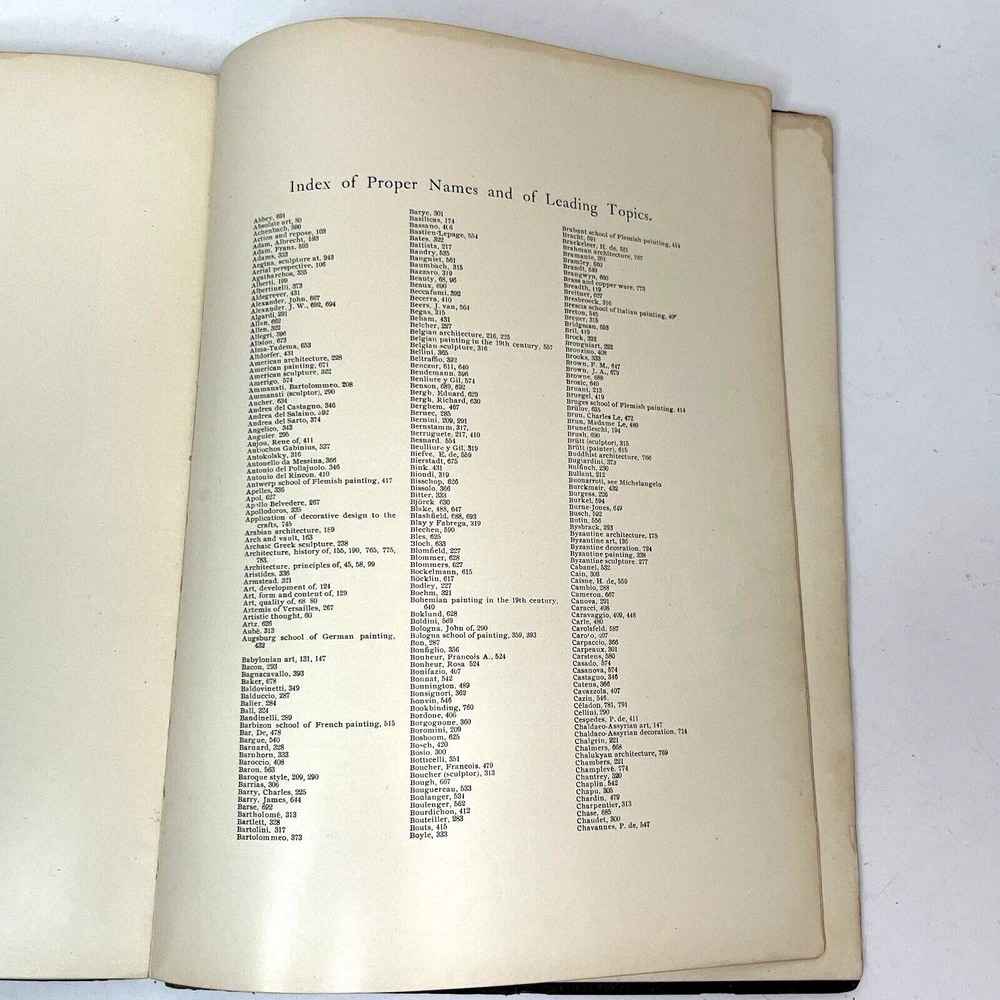 Index of Proper Names and of Leading Topics.
Abbey, 691
Absolute art, 80
Achenbach, 590
Action and repose, 103
Adam, Albrecht, 593
Adam, Franz, 593
Adams, 333
Aegina, sculpture at, 243
Aerial perspective, 106
Agatharchos, 335
Alberti, 199
Albertinelli, 373
Aldegrever, 431
Alexander, John, 667
Alexander, J. W., 692, 694
Algardi, 291
Allan, 662
Allen, 322
Allegri, 396
Allston, 673
Alma-Tadema, 653
Altdorfer, 431
American architecture, 228
American painting, 671
American sculpture, 322
Amerigo, 574
Ammanati, Bartolommeo, 208
Ammanati (sculptor), 290
Ancher, 634
Andrea del Castagno, 346
Andrea del Salaino, 392
Andrea del Sarto, 374
Angelico, 343
Anguier, 295
Anjou, Rene of, 411
Antiochos Gabinius, 337
Antokolsky, 316
Antonello da Messina, 366
Antonio del Pollajuolo, 346
Antonio del Rincon, 410
Antwerp school of Flemish painting, 417
Apelles, 336
Apol, 627
Apollo Belvedere, 267
Apollodoros, 335
Application of decorative design to the
crafts, 745
Arabian architecture, 189
Arch and vault, 163
Archaic Greek sculpture, 238
Architecture, history of, 155, 190, 765, 775,
783.
Architecture, principles of, 45, 58, 99
Aristides, 336
Armstead, 321
Art, development of, 124
Art, form and content of, 129
Art, quality of, 68 80
Artemis of Versailles, 267
Artistic thought, 60
Artz, 626
Aubé, 313
Augsburg school of German painting,
432
Babylonian art, 131, 147
Bacon, 293
Bagnacavallo, 393
Baker, 678
Baldovinetti, 349
Balduccio, 287
Balier, 284
Ball, 324
Bandinelli, 289
Barbizon school of French painting, 515
Bar, De, 478
Bargue, 540
Barnard, 328
Barnhorn, 333
Baroccio, 408
Baron, 563
Baroque style, 209, 290
Barrias, 306
Barry, Charles, 225
Barry, James, 644
Barse, 692
Bartholomé, 313
Bartlett, 328
Bartolini, 317
Bartolommeo, 373
Barye, 301
Basilicas, 174
Bassano, 406
Bastien-Lepage, 554
Bates, 322
Battista, 217
Baudry, 535
Baugniet, 561
Baumbach, 315
Bazzaro, 319
Beauty, 68, 96
Beaux, 690
Beccafumi, 392
Becerra, 410
Beers, J. van, 564
Begas, 315
Beham, 431
Belcher, 297
Belgian architecture, 216, 225
Belgian painting in the 19th century, 557
Belgian sculpture, 316
Bellini, 365
Beltraffio, 392
Benczur, 611, 640
Bendemann, 596
Benlliure y Gil, 574
Benson, 689, 692
Bergh, Eduard, 629
Bergh, Richard, 630
Berghem, 467
Bernec, 285
Bernini, 209, 291
Bernstamm, 317,
Berruguete, 217, 410
Besnard, 554
Beulliure y Gil, 319
Biefve, E. de, 559
Bierstadt, 675
Bink, 431
Biondi, 319
Bisschop, 626
Bissolo, 366
Bitter, 333
Björck 630
Blake, 488, 647
Blashfield, 688, 693
Blay y Fabrega, 319
Blechen, 590
Bles, 625
Bloch, 633
Blomfield, 227
Blommer, 628
Blommers, 627
Bockelmann, 615
Böcklin, 617
Bodley, 227
Boehm, 321
Bohemian painting in the 19th century,
640
Boklund, 628
Boldini, 569
Bologna, John of, 290
Bologna school of painting, 359, 393
Bon, 287
Bonfiglio, 356
Bonheur, Francois A., 524
Bonheur, Rosa 524
Bonifazio, 407
Bonnat, 542
Bonnington, 489
Bonsignori, 362
Bonvin, 546
Bookbinding, 760
Bordone, 406
Borgognone, 360
Boromini, 209
Bosboom, 625
Bosch, 420
Bosio, 300
Botticelli, 351
Boucher, Francois, 479
Boucher (sculptor), 313
Bough, 667
Bouguereau, 533
Boulanger, 534
Boulenger, 562
Bourdichon, 412
Bouteiller, 283
Bouts, 415
Boyle, 333
Brabant school of Flemish painting, 414
Bracht, 591
Braekeleer, H. de, 561
Brahman architecture, 767
Bramante, 201
Bramley, 660
Brandt, 640
Brangwyn, 660
Brass and copper ware, 773
Breadth, 119
Breitner, 627
Bresbroeck, 316
Brescia school of Italian painting,
Breton, 545
Breuer, 315
Bridgman, 693
Bril, 419
Brock, 322
Brongniart, 222
Bronzino, 408
Brooks, 333
Brown, F. M., 647
Brown, J. A., 679
Browne, 688
Brozic, 640
Bruant, 213
Bruegel, 419
Bruges school of Flemish painting, 414
Brülov, 635
Brun, Charles Le, 472
Brun, Madame Le, 480
Brunelleschi, 194
Brush, 690
Brütt (sculptor), 315
Brütt (painter), 615
Buddhist architecture, 766
Bugiardini, 373
Bulfinch, 230
Bullant, 212
Buonarroti, see Michelangelo
Burckmair, 432
Burgess, 226
Burkel, 594
Burne-Jones, 649
Busch, 592
Butin, 556
Bysbrack, 293
Byzantine architecture, 175
Byzantine art, 136
Byzantine decoration, 724
Byzantine painting, 338
Byzantine sculpture, 277
Cabanel, 532
Cain, 303
Caisne, H. de, 559
Cambio, 288
Cameron, 667
Canova, 291
Caracci, 408
Caravaggio, 409, 448
Carle, 480
Carolsfeld, 587
Caroto, 407
Carpaccio, 366
Carpeaux, 301
Carstens, 580
Casado, 574
Casanova, 574
Castagno, 346
Catena, 366
Cavazzola, 407
Cazin, 546.
Céladon, 781, 791
Cellini, 290
Cespedes, P. de, 411
Chaldaeo-Assyrian art, 147
Chaldaeo-Assyrian decoration, 714
Chalgrin, 221
Chalmers, 668
Chalukyan architecture, 769
Chambers, 221
Champlevé, 774
Chantrey, 320
Chaplin, 542
Chapu, 305
Chardin, 479
Charpentier, 313
Chase, 685
Chaudet, 300
Chavannes, P. de, 547